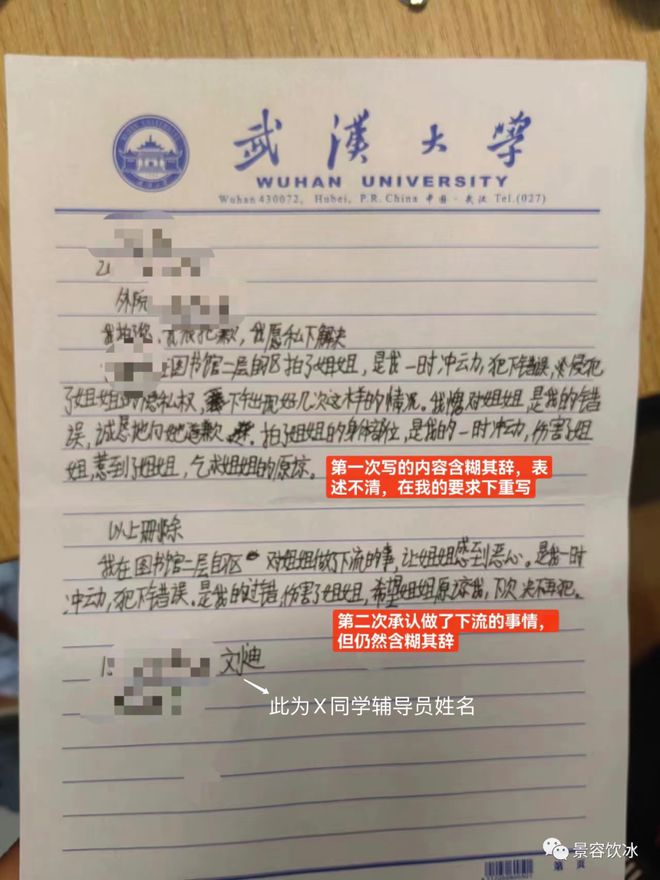 武漢大學
WUHAN UNIVERSITY
Wuhan 430072, Hubei, P.R. China 中国·武汉 Tel.(027)
外院
道歉,我愿私下解决
在图书馆二层自习区拍了姐姐,是我一时冲动,犯下错误,侵犯
了姐姐的隐私权,出现好几次这样的情况。我愧对姐姐,是我的错
误,诚恳地向她道歉,拍了姐姐的身体部位,是我的一时冲动,伤害了姐
姐,惹到了姐姐,乞求姐姐的原谅。
第一次写的内容含糊其辞,表
述不清,在我的要求下重写
以上删除
我在图书馆二层自习区 对姐姐做了下流的事,让姐姐感到恶心。是我一时
冲动,犯下错误。是我的过错,伤害了姐姐,希望姐姐原谅我,下次决不再犯。
第二次承认做了下流的事情,
但仍然含糊其辞
刘迪
此为X同学辅导员姓名
景容饮冰
第 页